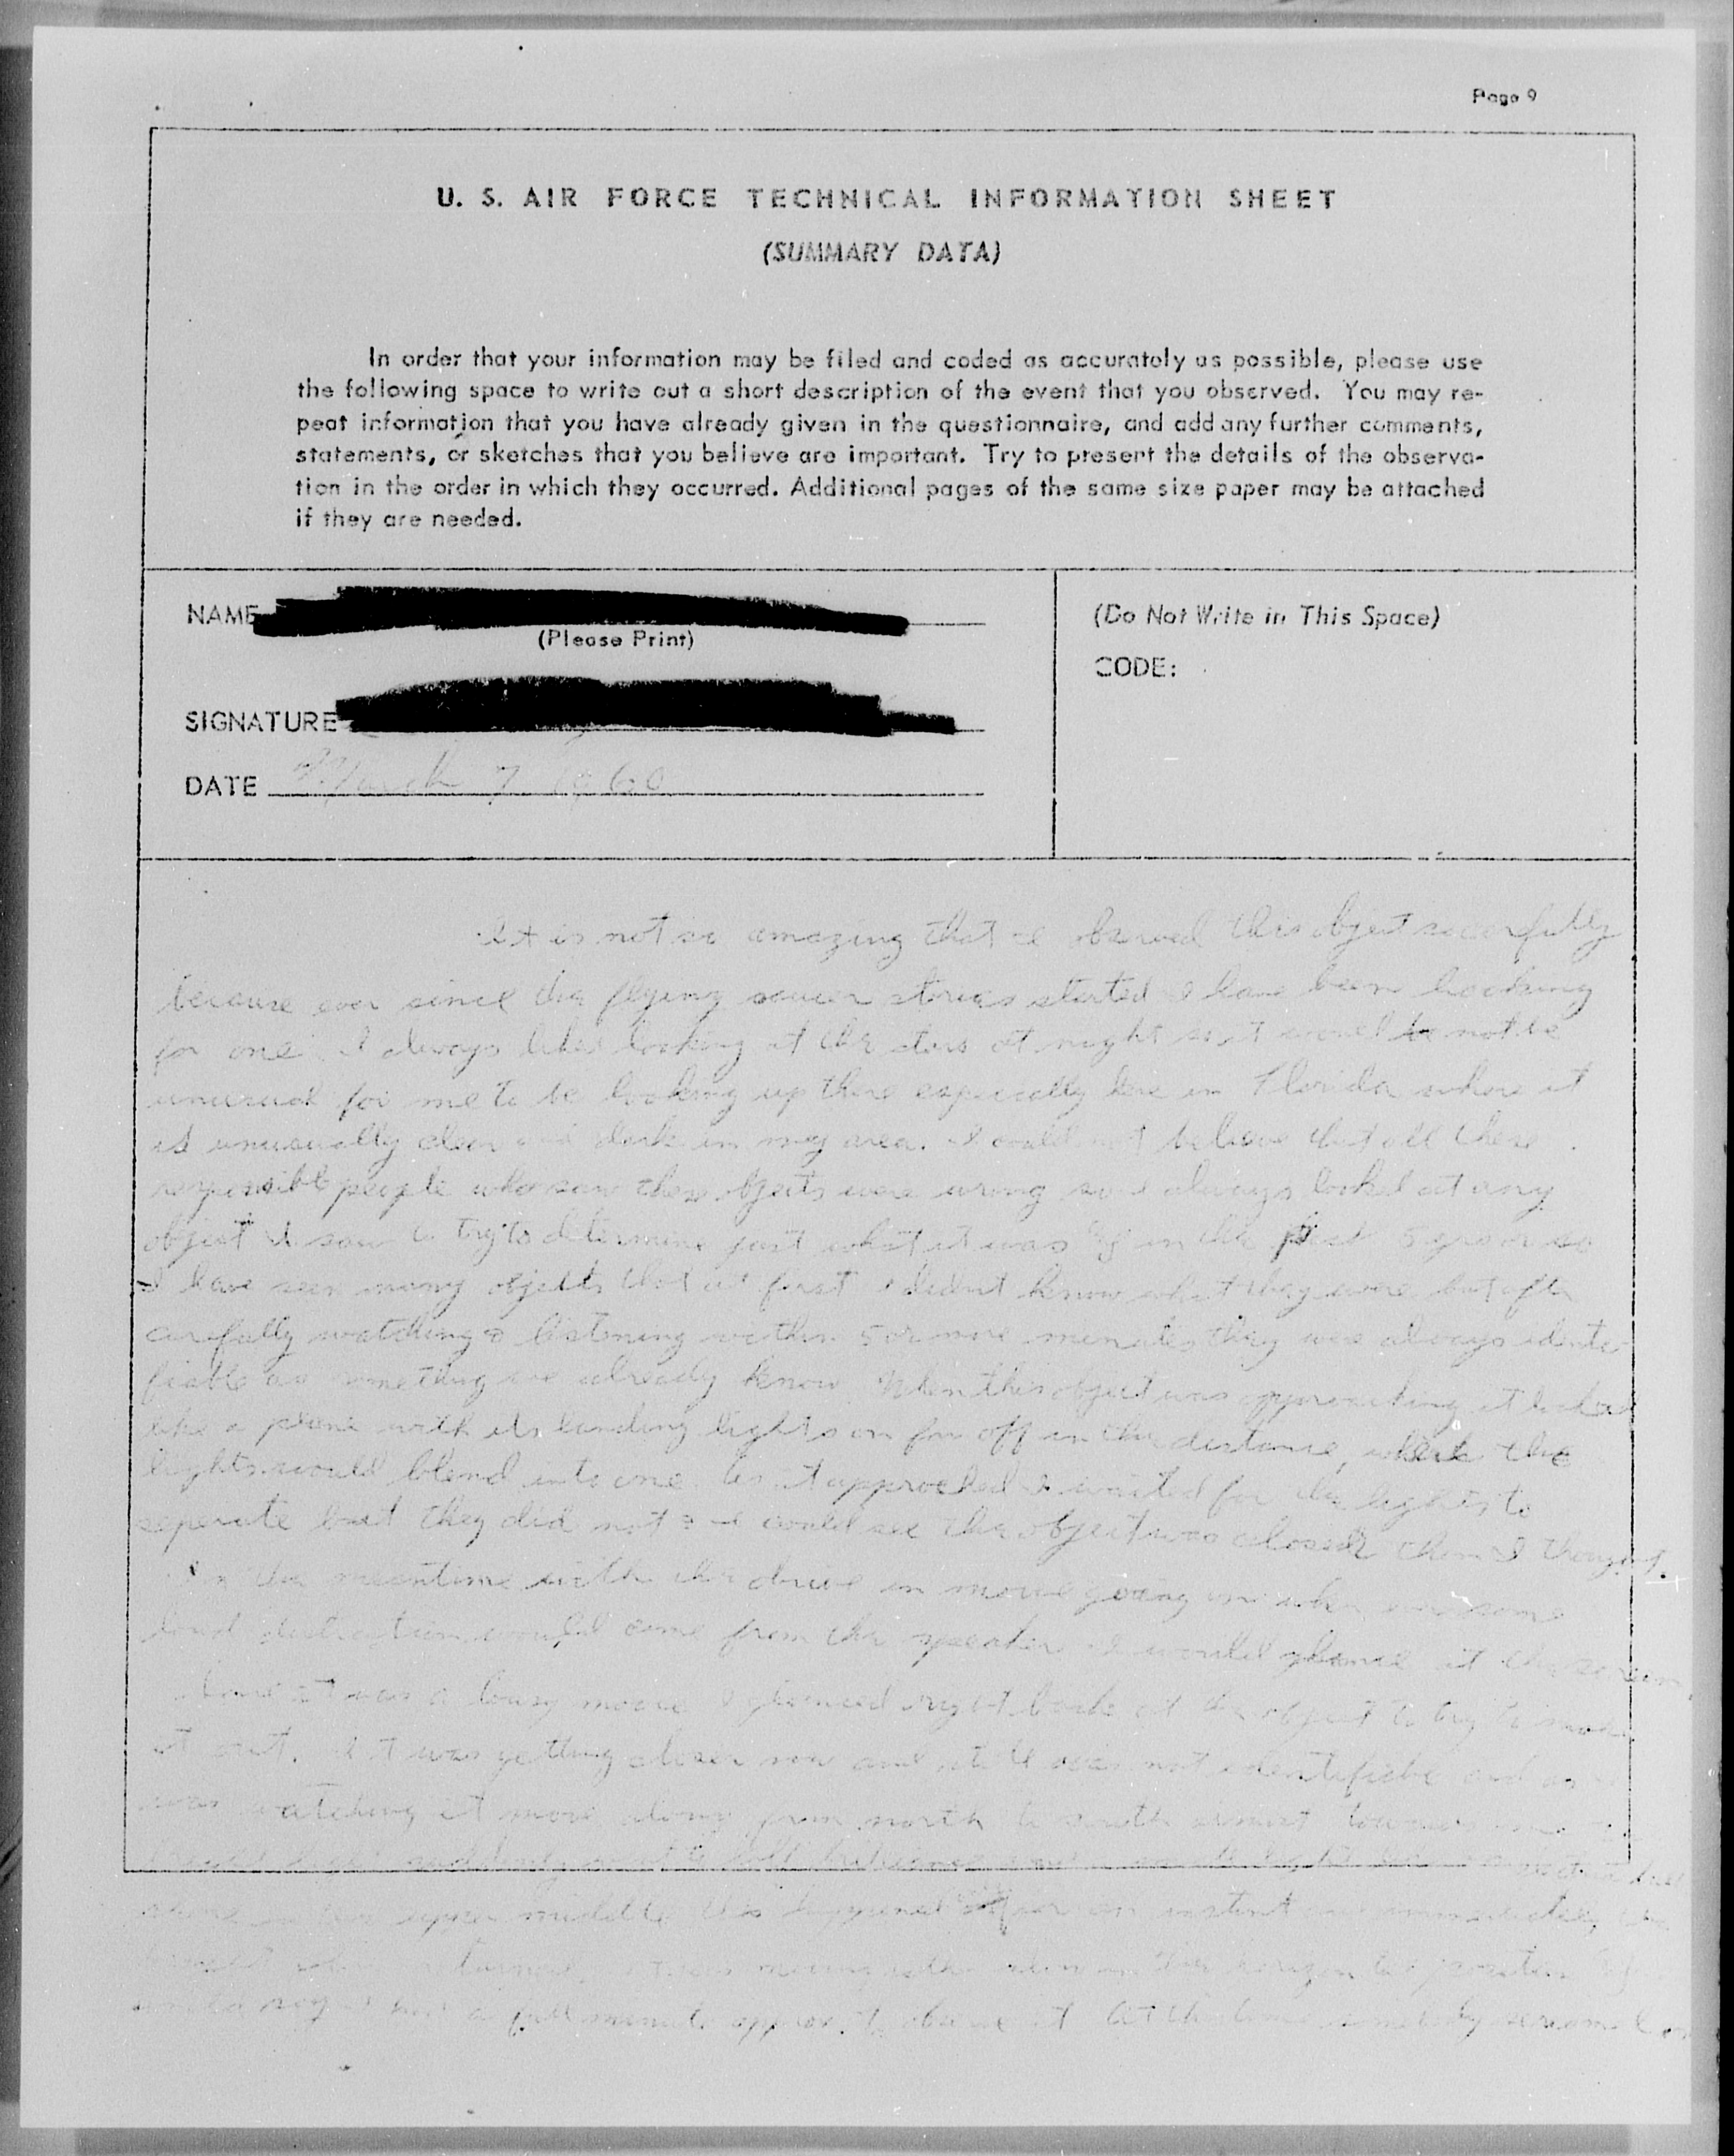 Page 9
U. S. AIR FORCE TECHNICAL INFORMATION SHEET
(SUMMARY DATA)
In order that your information may be filed and coded as accurately as possible, please use
the following space to write out a short description of the event that you observed. You may re-
peat information that you have already given in the questionnaire, and add any further comments,
statements, or sketches that you believe are important. Try to present the details of the observa-
tion in the order in which they occurred. Additional pages of the same size paper may be attached
if they are needed.
NAME
(Please Print)
(Do Not Write in This Space)
CODE:
SIGNATURE
DATE March 7 1960
It is not so amazing that I observed this object so carefully
because ever since the flying saucer stories started I have been looking
for one. I always liked looking at the stars at night so it would not be
unusual for me to be looking up there especially here in Florida where it
is unusually clear and dark in my area. I could not believe that all these
responsible people who saw these objects were wrong so I always looked at any
object I saw to try to determine just what it was & in the past 5 yrs or so
I have seen many objects that at first I didnt know what they were but after
carefully watching & listening within 5 or more minutes they were always identi
fiable as something we already know. When this object was approaching it looked
like a plane with its landing lights on far off in the distance, where the
lights would blend into one. As it approched I waited for the lights to
seperate but they did not & I could see the object was closer than I thought.
In the meantime with the drive in movie going on when ever some
loud distraction would come from the speaker I would glance at the screen.
Since it was a lousy movie I glanced right back at the object to try to make
it out. It was getting closer now and still was not identifiable and as I
was watching it move along from north to south almost towards me
suddenly
upper middle this happened for an instant and immediately the
returned. It was moving
would say I had a full minute approx. to observe it. At this time somebody